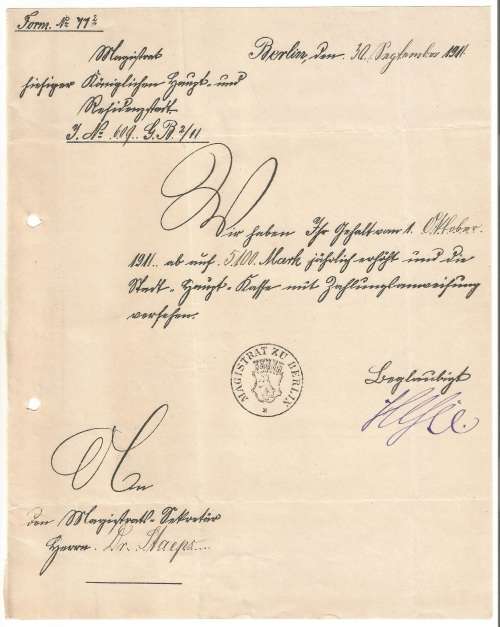 Form. No 77²
Berlin, den 30. September 1911.
Magistrat
hiesiger Königlichen Haupt- und
Residenzstadt.
J. No 609 G.B. 2/11
Wir haben Ihr Gehalt vom 1. Oktober
1911. ab auf 5100 Mark jährlich erhöht und die
Stadt-Haupt-Kasse mit Zahlungsanweisung
versehen.
MAGISTRAT ZU BERLIN
Beglaubigt
An
den Magistrats-Sekretär
Herrn Dr. Staeps